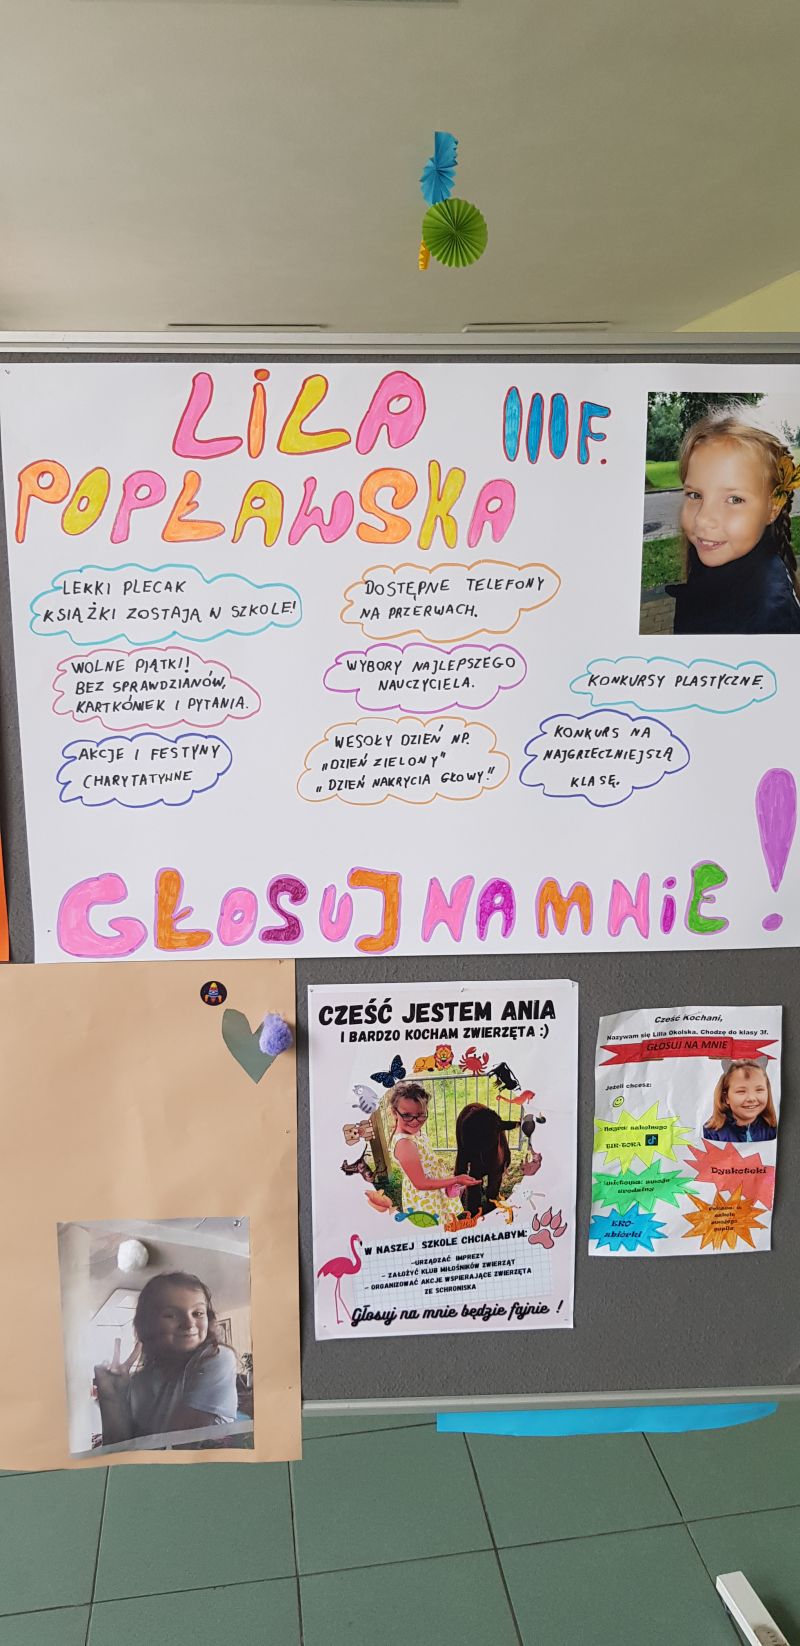 LILA III F.
POPŁAWSKA
LEKKI PLECAK
KSIĄŻKI ZOSTAJĄ W SZKOLE!
DOSTĘPNE TELEFONY
NA PRZERWACH.
WOLNE PIĄTKI!
BEZ SPRAWDZIANÓW,
KARTKÓWEK I PYTANIA.
WYBORY NAJLEPSZEGO
NAUCZYCIELA.
KONKURSY PLASTYCZNE.
AKCJE I FESTYNY
CHARYTATYWNE
WESOŁY DZIEŃ NP.
„DZIEŃ ZIELONY"
„DZIEŃ NAKRYCIA GŁOWY!"
KONKURS NA
NAJGRZECZNIEJSZĄ
KLASĘ.
GŁOSUJ NA MNIE!
CZEŚĆ JESTEM ANIA
I BARDZO KOCHAM ZWIERZĘTA :)
W NASZEJ SZKOLE CHCIAŁABYM:
-URZĄDZAĆ IMPREZY
- ZAŁOŻYĆ KLUB MIŁOŚNIKÓW ZWIERZĄT
- ORGANIZOWAĆ AKCJE WSPIERAJĄCE ZWIERZĘTA
ZE SCHRONISKA
Głosuj na mnie będzie fajnie !
Cześć Kochani,
Nazywam się Lilla Okolska. Chodzę do klasy 3f.
GŁOSUJ NA MNIE
Jeżeli chcesz:
szkolnego
TIK-TOKA
Dyskoteki
urodziny
szkole
swojego
pupila
EKO-
zbiórki